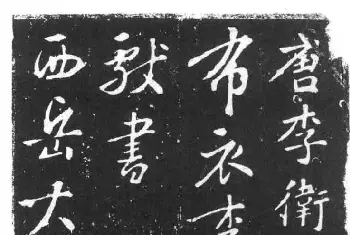 唐李衛
布衣李
獻書
西岳大